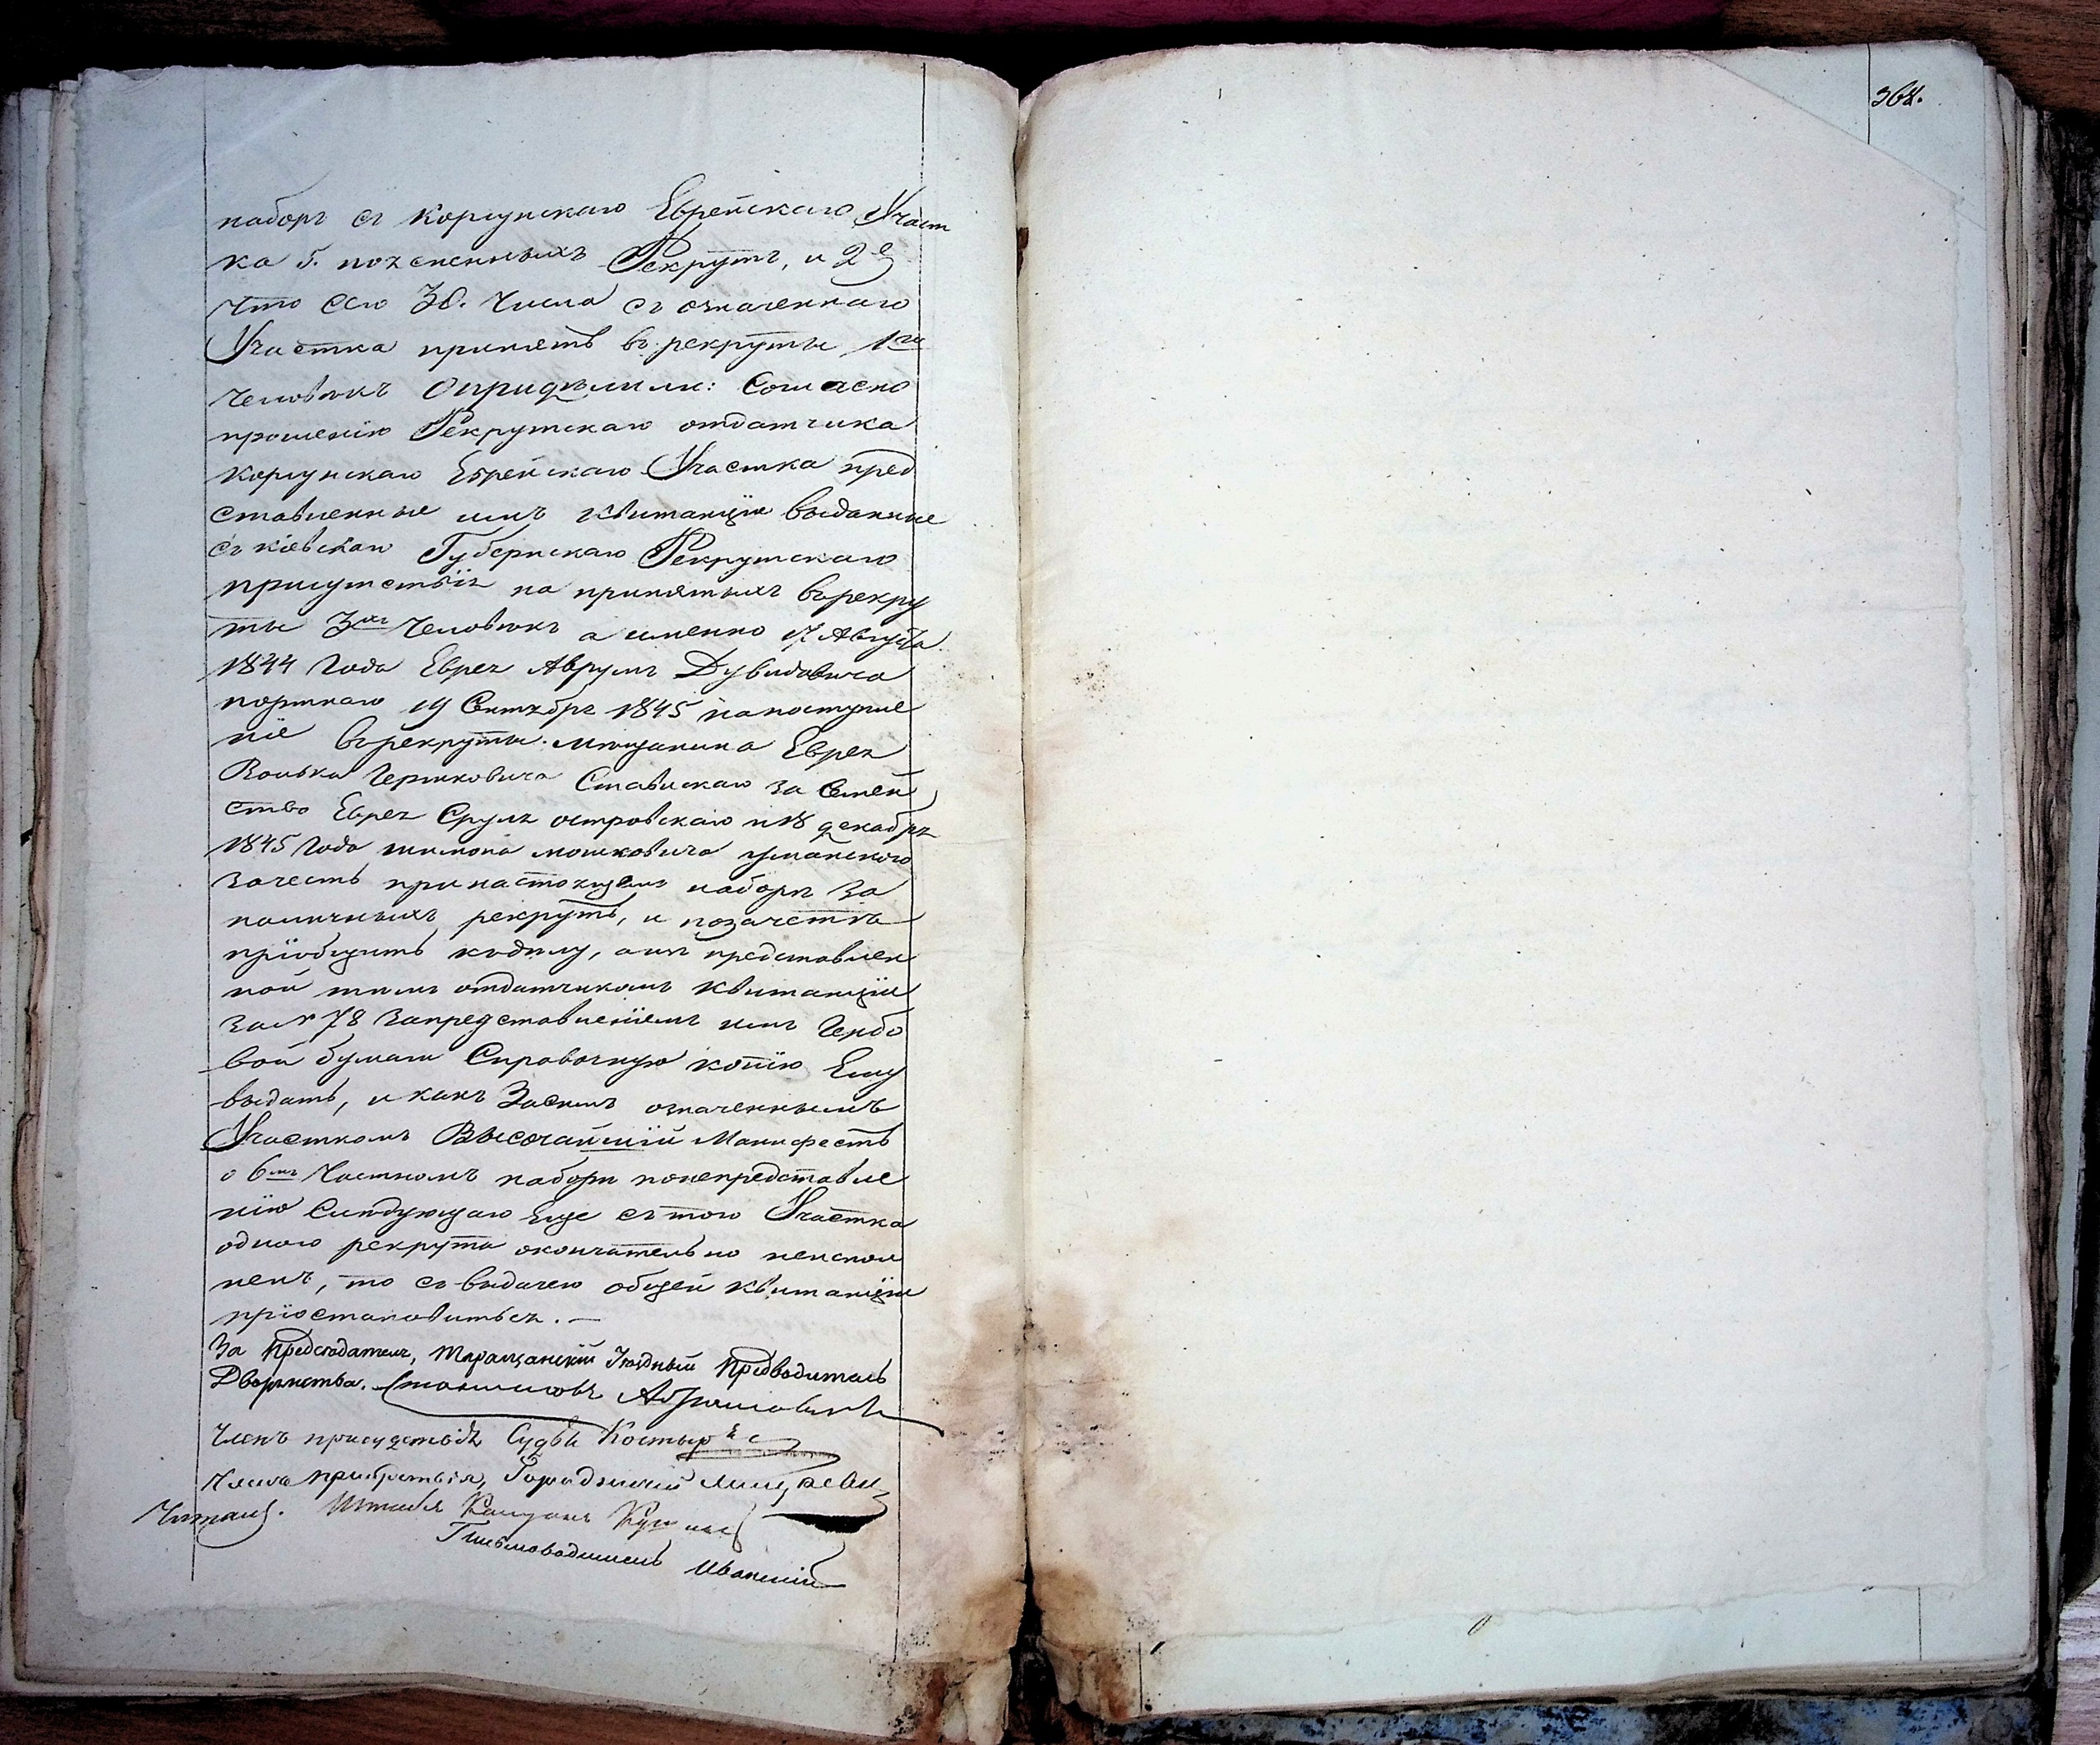 368.
наборъ съ Корсунскаго Еврейскаго Участ
ка 5. поясненныхъ Рекрутъ, и 2е
что сего 30. Числа съ означеннаго
Участка принятъ въ рекруты 1нъ
Человѣкъ Опридѣлили: Согласно
прошенію Рекрутскаго отдатчика
Корсунскаго Еврейскаго Участка пред
ставленные имъ Квитанціи выданные
съ Кіевскаго Губернскаго Рекрутскаго
присутствія на принятыхъ въ рекру
ты 3хъ Человѣкъ а именно 17 Августа
1844 Года Еврея Аврума Дувидовича
портнаго 19 Сентября 1845 на поступле
ніе въ рекруты мѣщанина Еврея
Волька Гершковича Ставискаго за Семей
ство Еврея Сруля островскаго и 18 декабря
1845 Года шимона мошковича уманского
зачесть при настоящемъ наборѣ за
наличныхъ рекрутъ, и по зачетѣ
пріобщить къ дѣлу, а съ представлен
ной тѣмъ отдатчикомъ Квитанціи
за № 78 за представленіемъ имъ Гербо
вой бумаги Справочную копію Ему
выдать, и какъ За симъ означеннымъ
Участкомъ Высочайшій Манифестъ
о 6мъ Частномъ наборѣ по непредставле
нію Слѣдующаго Еще съ того Участка
одного рекрута окончательно неиспол
ненъ, то съ выдачею общей квитанціи
пріостановиться. —
За Председателя, Таращанскій Уѣздный Предводитель
Дворянства. Станиславъ Абрамовичъ
Членъ присудствія Судья
Членъ присутствія, Городничій
Читалъ. Штабсъ Капитанъ
Письмоводитель Иванскій